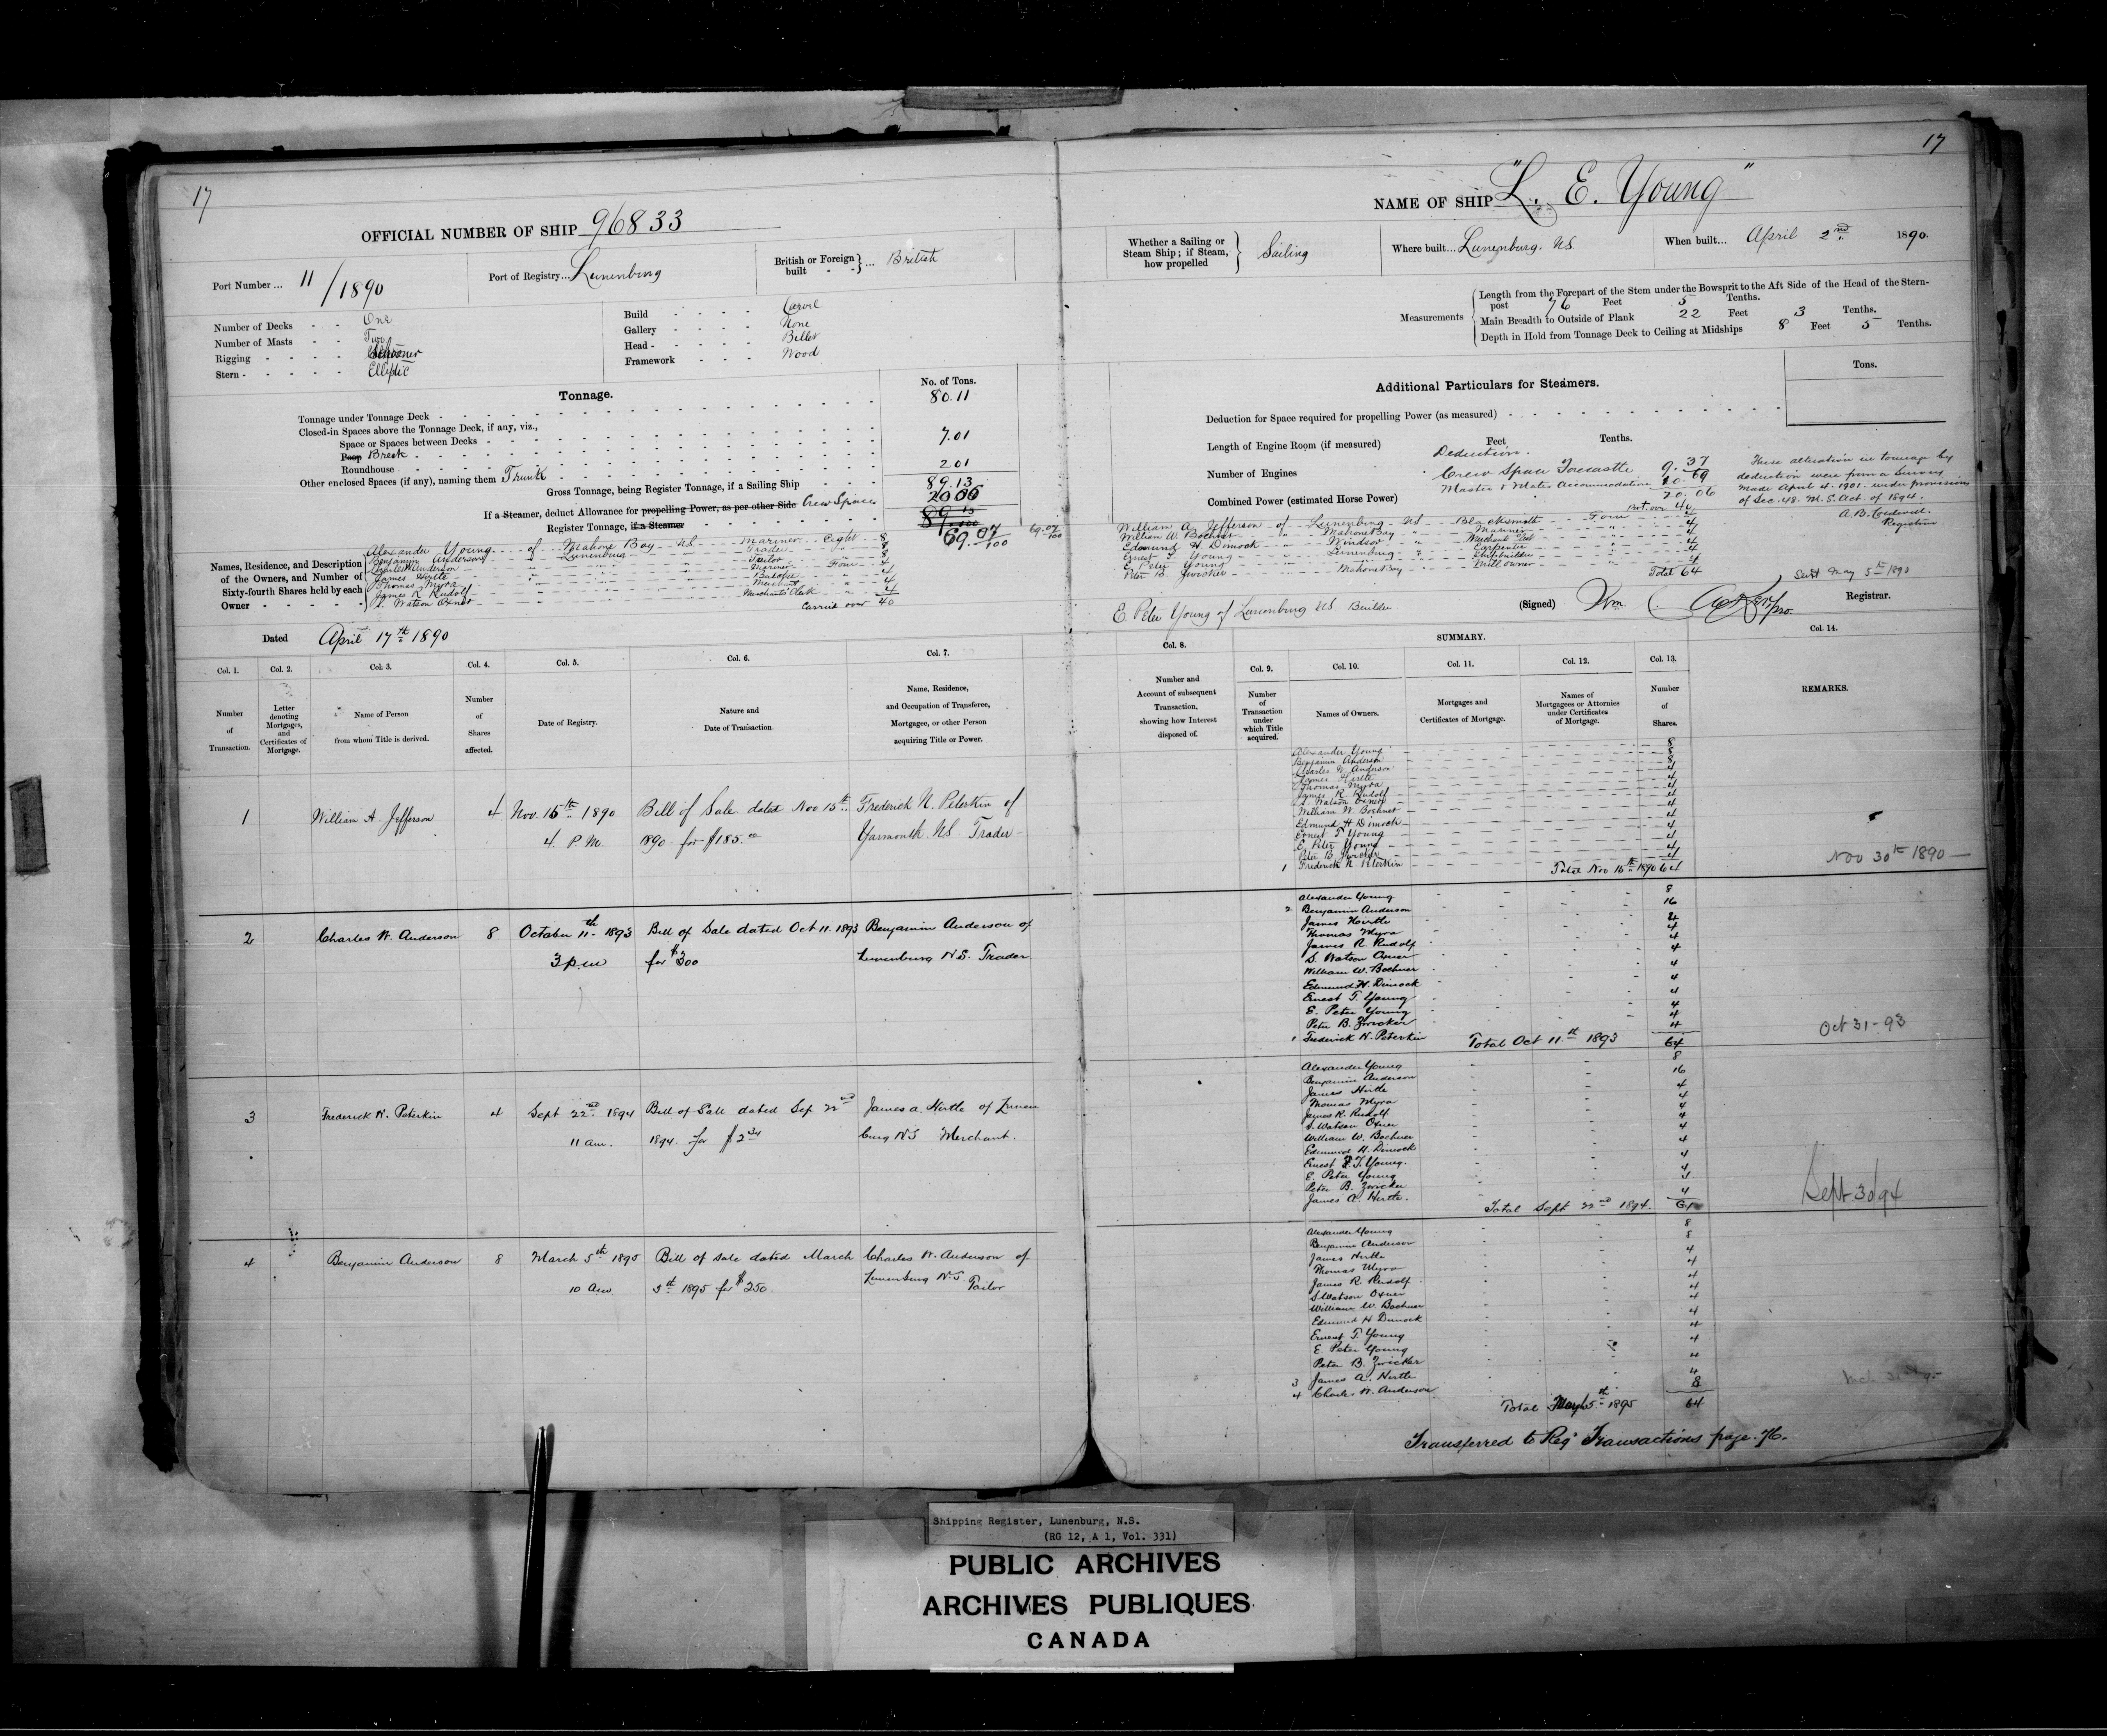 17
OFFICIAL NUMBER OF SHIP 96833
Port Number ... 11/1890
Port of Registry... Lunenburg
British or Foreign built - - } ... British
Number of Decks - - One
Number of Masts - - Two
Rigging - - - - Schooner
Stern - - - - - Elliptic
Build - - - - Carvel
Gallery - - - - None
Head - - - - - Billet
Framework - - - Wood
Tonnage.
No. of Tons.
Tonnage under Tonnage Deck - 80.11
Closed-in Spaces above the Tonnage Deck, if any, viz.,
Space or Spaces between Decks -
Poop Break - 7.01
Roundhouse
Other enclosed Spaces (if any), naming them Trunk 2.01
Gross Tonnage, being Register Tonnage, if a Sailing Ship 89.13
If a Steamer, deduct Allowance for propelling Power, as per other Side Crew Space 20 06
Register Tonnage, if a Steamer 69.07/100
69.07/100
Names, Residence, and Description of the Owners, and Number of Sixty-fourth Shares held by each Owner - - - - -
Alexander Young - of - Mahone Bay - NS. - Mariner - Eight - 8
Benjamin Anderson - " - Lunenburg - Trader - " - 8
Charles W Anderson - Tailor - " - 8
James Hirtle - Mariner - Four - 4
Thomas Myra - " - 4
James R Rudolf - Merchant - " - 4
S. Watson Oxner - Merchants Clerk - " - 4
Carried over 40
Dated April 17th 1890
Col. 1. Col. 2. Col. 3. Col. 4. Col. 5. Col. 6. Col. 7.
Number of Transaction.
Letter denoting Mortgages, and Certificates of Mortgage.
Name of Person from whom Title is derived.
Number of Shares affected.
Date of Registry.
Nature and Date of Transaction.
Name, Residence, and Occupation of Transferee, Mortgagee, or other Person acquiring Title or Power.
1 William A. Jefferson 4 Nov. 15th 1890 Bill of Sale dated Nov 15th Frederick N. Peterkin of
4 P.M. 1890 for $185.00 Yarmouth NS Trader
2 Charles W. Anderson 8 October 11th 1893 Bill of Sale dated Oct 11. 1893 Benjamin Anderson of
3 p.m for $300 Lunenburg N.S. Trader
3 Frederick N. Peterkin 4 Sept 22nd 1894 Bill of Sale dated Sep 22nd James A. Hirtle of Lunen
11 am. 1894. for $234 burg NS Merchant.
4 Benjamin Anderson 8 March 5th 1895 Bill of sale dated March Charles W. Anderson of
10 am 5th 1895 for $250. Lunenburg N.S. Tailor
17
NAME OF SHIP "L. E. Young"
Whether a Sailing or Steam Ship; if Steam, how propelled } Sailing
Where built... Lunenburg. NS
When built... April 2nd 1890.
Measurements
Length from the Forepart of the Stem under the Bowsprit to the Aft Side of the Head of the Stern-
post 76 Feet 5 Tenths.
Main Breadth to Outside of Plank 22 Feet 3 Tenths.
Depth in Hold from Tonnage Deck to Ceiling at Midships 8 Feet 5 Tenths.
Additional Particulars for Steamers.
Tons.
Deduction for Space required for propelling Power (as measured)
Length of Engine Room (if measured) Feet Tenths.
Number of Engines
Combined Power (estimated Horse Power)
Deduction.
Crew Space Forecastle 9.37
Master & Mates Accommodation 10.69
20.06
These alteration in tonnage by
deduction were from a survey
made April 4. 1901. under provisions
of Sec. 48. M.S. Act. of 1894.
Registrar
Brt. over 40
William A. Jefferson of Lunenburg - NS - Blacksmith - Four - 4
William W. Bochner - " - Mahone Bay - Mariner - " - 4
Edmund H. Dimock - " - Windsor - " - 4
Ernest T Young - " - Lunenburg - Carpenter - " - 4
E. Peter Young - Shipbuilder - 4
Peter B. Zwicker - Mahone Bay - Mill owner - " - 4
Total 64
Sent May 5th 1890
E. Peter Young of Lunenburg NS Builder.
(Signed) Wm. Registrar.
Col. 8.
SUMMARY.
Col. 9. Col. 10. Col. 11. Col. 12. Col. 13. Col. 14.
Number and Account of subsequent Transaction, showing how Interest disposed of.
Number of Transaction under which Title acquired.
Names of Owners.
Mortgages and Certificates of Mortgage.
Names of Mortgagees or Attornies under Certificates of Mortgage.
Number of Shares.
REMARKS.
Alexander Young 8
Benjamin Anderson 8
Charles W. Anderson 8
James Hirtle 4
Thomas Myra 4
James R Rudolf 4
S. Watson Oxner 4
William W. Bochner 4
Edmund H Dimock 4
Ernest T Young 4
E Peter Young 4
Peter B Zwicker 4
1 Frederick N. Peterkin 4
Total Nov 15th 1890 64
Nov 30th 1890
Alexander Young 8
2 Benjamin Anderson 16
James Hirtle 4
Thomas Myra 4
James R. Rudolf 4
S. Watson Oxner 4
William W. Bochner 4
Edmund H. Dimock 4
Ernest T. Young 4
E. Peter Young 4
Peter B. Zwicker 4
1 Frederick N. Peterkin 4
Total Oct 11th 1893 64
Oct 31-93
Alexander Young 8
Benjamin Anderson 16
James Hirtle 4
Thomas Myra 4
James R. Rudolf 4
S. Watson Oxner 4
William W. Bochner 4
Edmund H. Dimock 4
Ernest T. Young. 4
E. Peter Young 4
Peter B. Zwicker 4
James A. Hirtle. 4
Total Sept 22nd 1894. 64
Sept 30/94
Alexander Young 8
Benjamin Anderson 8
James Hirtle 4
Thomas Myra 4
James R. Rudolf 4
S Watson Oxner 4
William W. Bochner 4
Edmund H Dimock 4
Ernest T. Young 4
E. Peter Young 4
Peter B. Zwicker 4
3 James A. Hirtle 4
4 Charles W. Anderson 8
Total 5th 1895 64
Transferred to Reg Transactions page. 76.
Shipping Register, Lunenburg, N.S.
(RG 12, A 1, Vol. 331)
PUBLIC ARCHIVES
ARCHIVES PUBLIQUES
CANADA